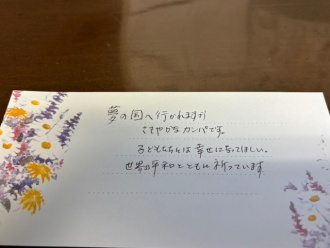 夢の国へ行かれますが
ささやかなカンパです。
子どもたちには幸せになってほしい。
世界の平和とともに祈っています